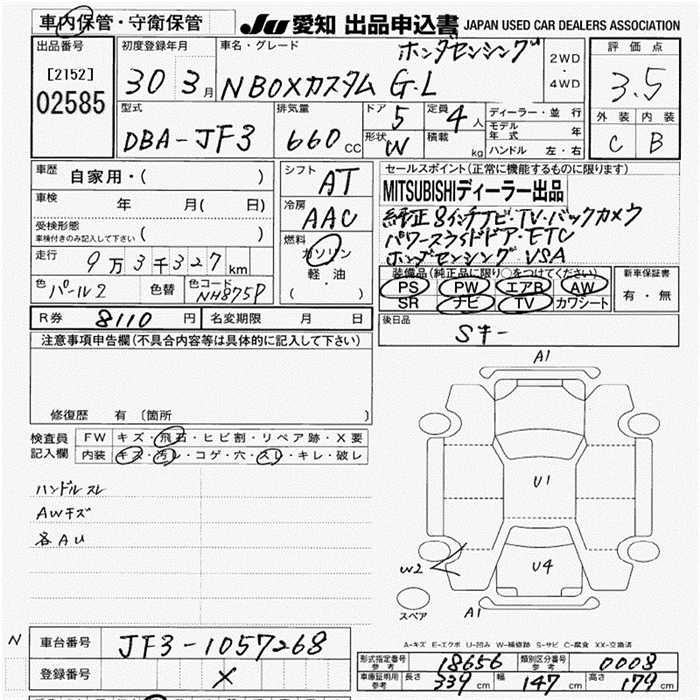 車内保管・守衛保管
JU 愛知 出品申込書 JAPAN USED CAR DEALERS ASSOCIATION
出品番号
[2152]
02585
初度登録年月
30 3月
車名・グレード
ホンダセンシング
N BOXカスタム G・L
2WD
・
4WD
評価点
3.5
外装 内装
C B
型式
DBA-JF3
排気量
660 CC
ドア 5
形状 W
定員 4人
積載 kg
ディーラー・並行
モデル年式 年
ハンドル 左・右
車歴 自家用・( )
車検 年 月( 日)
受検形態
車検付きのみ記入して下さい ( )
走行 9万3千327km
色 パール2 色替 色コード NH875P
シフト AT
冷房 AAC
燃料
ガソリン
軽・油
( )
セールスポイント(正常に機能するものに限ります)
MITSUBISHIディーラー出品
純正8インチナビ・TV・バックカメラ
パワースライドドア・ETC
ホンダセンシング VSA
装備品(純正品に限り○をつけてください)
PS PW エアB AW
SR ナビ TV カワシート
新車保証書
有・無
R券 8110 円 名変期限 月 日
後日品
Sキー
注意事項申告欄(不具合内容等は具体的に記入して下さい)
修復歴 有 〔箇所 〕
検査員
記入欄
FW キズ・飛石・ヒビ割・リペア跡・X要
内装 キズ・汚レ・コゲ・穴・スレ・キレ・破レ
ハンドルスレ
AWキズ
各AU
A1
U1
U4
W2
スペア
A1
A-キズ E-エクボ U-凹み W-補修跡 S-サビ C-腐食 XX-交換済
N
車台番号 JF3-1057268
登録番号 X
型式指定番号 参考 18656 類別区分番号 参考 0008
車庫証明用 参考 長さ 339cm 幅 147cm 高さ 179cm